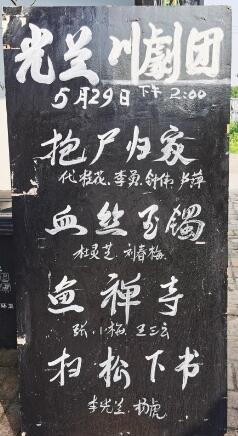 光兰川劇团
5月29日下午2:00
抱尸归家
代桂花、李勇、钟伟、卢萍
血丝玉镯
杜灵芝、刘春梅
鱼禅寺
张小梅、卫三云
扫松下书
李光兰、杨虎